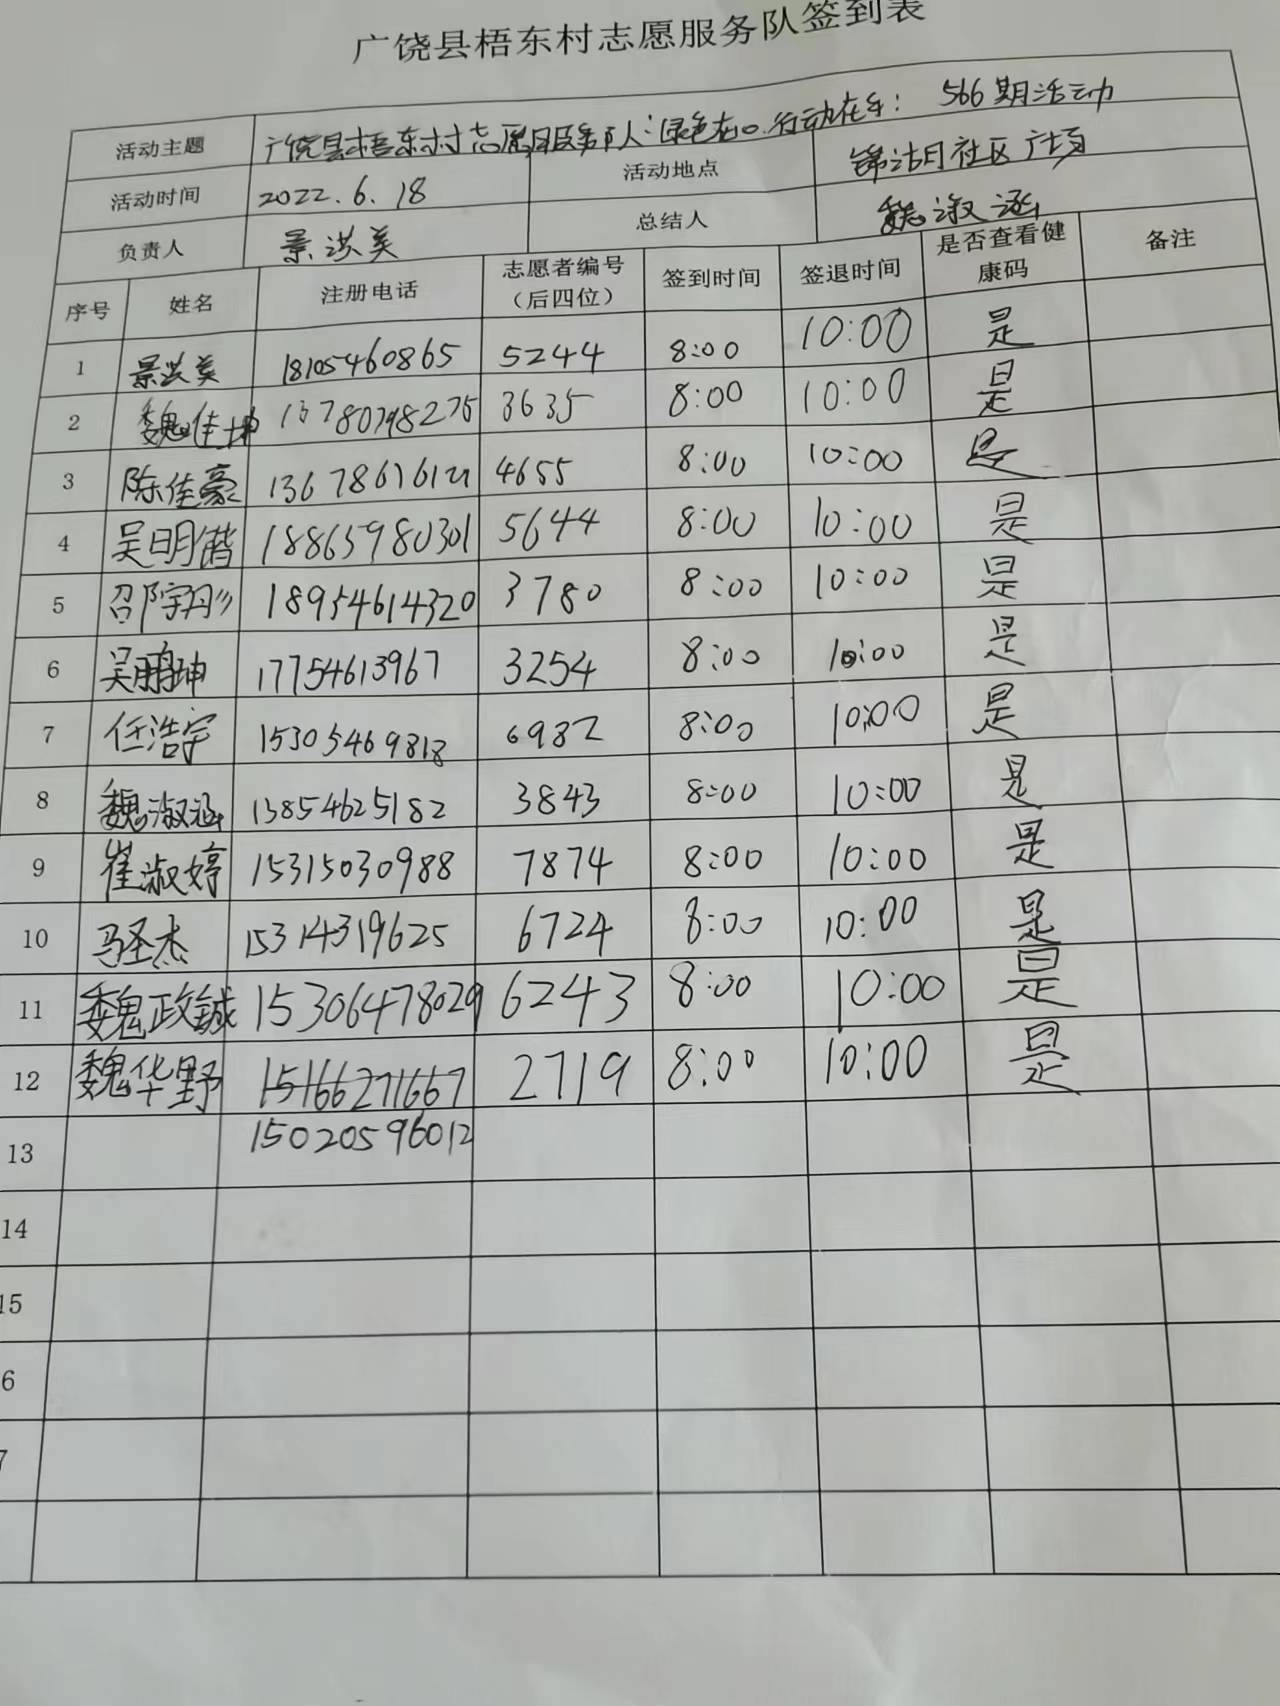 广饶县梧东村志愿服务队签到表
活动主题 广饶县梧东村志愿服务队:绿色在心.行动在手: 566期活动
活动时间 2022.6.18 活动地点 锦湖月社区广场
负责人 景洪美 总结人 魏淑涵
序号 姓名 注册电话 志愿者编号(后四位) 签到时间 签退时间 是否查看健康码 备注
1 景洪美 18105460865 5244 8:00 10:00 是
2 魏佳坤 13780798275 3635 8:00 10:00 是
3 陈佳豪 4655 8:00 10:00 是
4 吴明锴 18865980301 5644 8:00 10:00 是
5 邵宇彤 18954614320 3780 8:00 10:00 是
6 吴鹏坤 17754613967 3254 8:00 10:00 是
7 任浩宇 15305469818 6982 8:00 10:00 是
8 魏淑涵 13854625182 3843 8:00 10:00 是
9 崔淑婷 15315030988 7874 8:00 10:00 是
10 马圣杰 15314319625 6724 8:00 10:00 是
11 魏政鋮 15306478029 6243 8:00 10:00 是
12 魏华野 15166271667 2719 8:00 10:00 是
13 15020596012
14
15
6
7